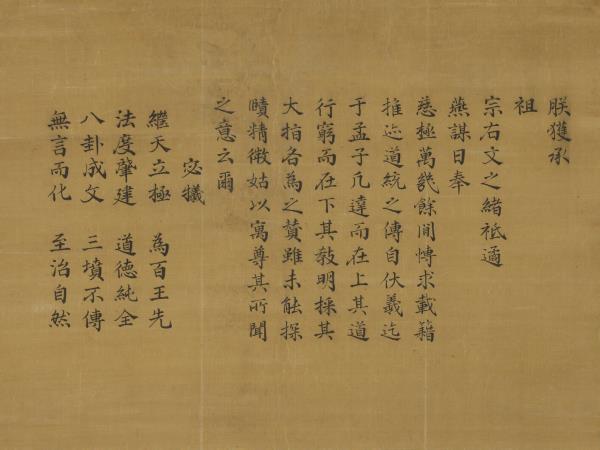 朕獲承
祖
宗右文之緒祗遹
燕謀日奉
慈極萬幾餘閒愽求載籍
推迹道統之傳自伏羲迄
于孟子凡達而在上其道
行窮而在下其教明採其
大指各為之贊雖未能探
賾精微姑以寓尊其所聞
之意云爾
宓犧
繼天立極　為百王先
法度肇建　道德純全
八卦成文　三墳不傳
無言而化　至治自然